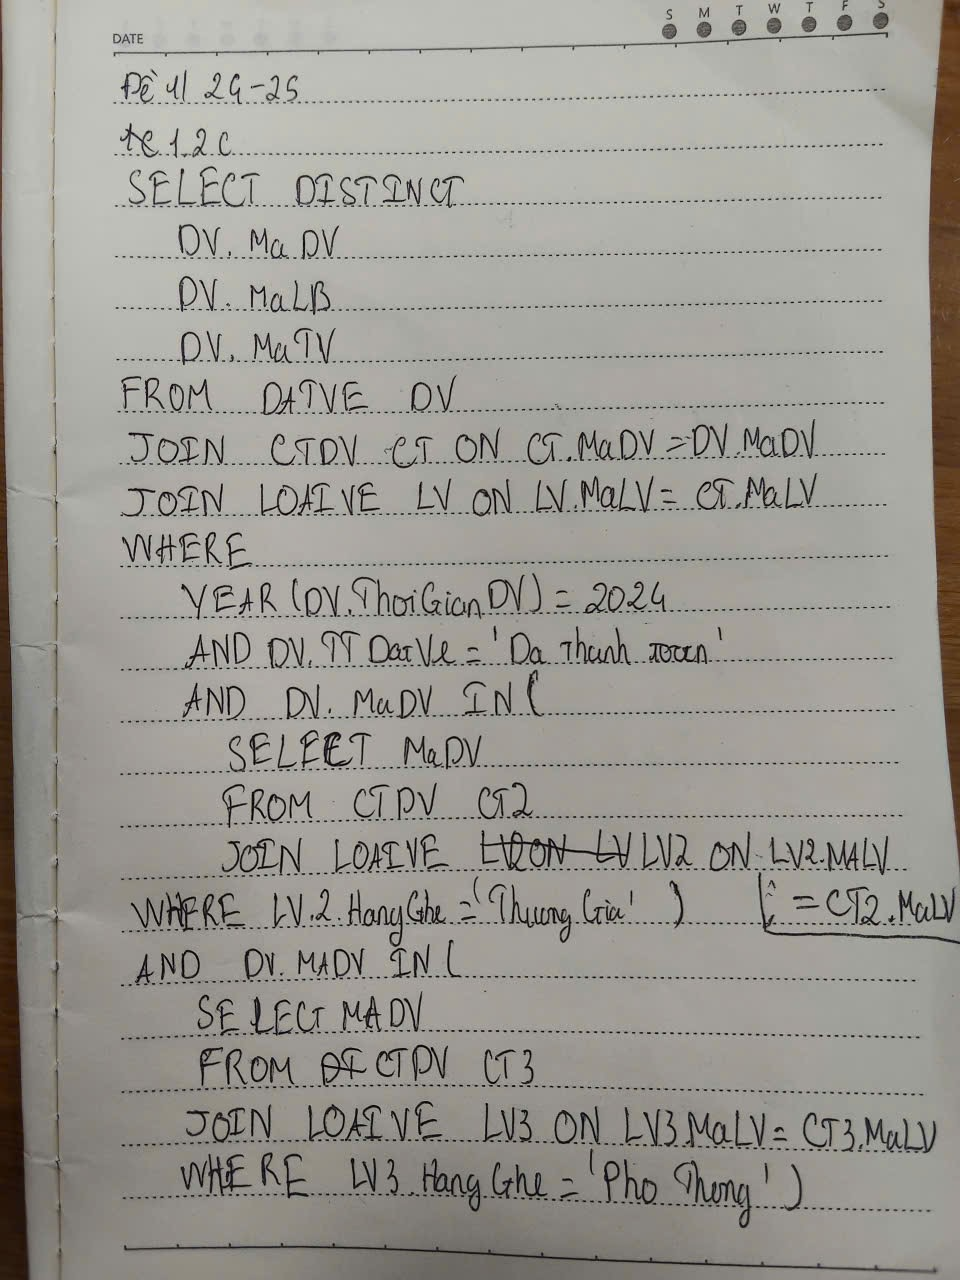 S M T W T F S
DATE
Đề 4/ 24-25
1.2 C
SELECT DISTINCT
DV. MaDV
DV. MaLB
DV. MaTV
FROM DATVE DV
JOIN CTDV CT ON CT.MaDV = DV.MaDV
JOIN LOAIVE LV ON LV.MaLV = CT.MaLV
WHERE
YEAR (DV.ThoiGianDV) = 2024
AND DV.TTDatVe = 'Da Thanh toan'
AND DV. MaDV IN (
SELECT MaDV
FROM CTDV CT2
JOIN LOAIVE LV2 ON LV2.MALV
WHERE LV.2.HangGhe = 'Thuong Gia' ) = CT2.MaLV
AND DV. MADV IN (
SELECT MADV
FROM CTDV CT3
JOIN LOAIVE LV3 ON LV3.MaLV = CT3.MaLV
WHERE LV3.HangGhe = 'Pho Thong' )